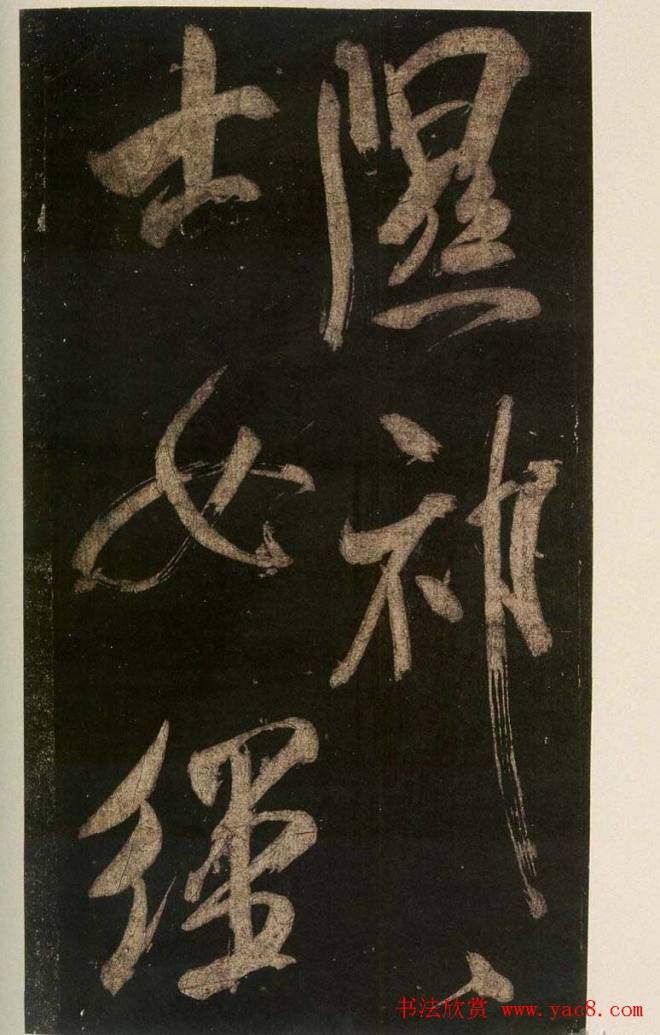 隰神
士女
书法欣赏 www.yac8.com